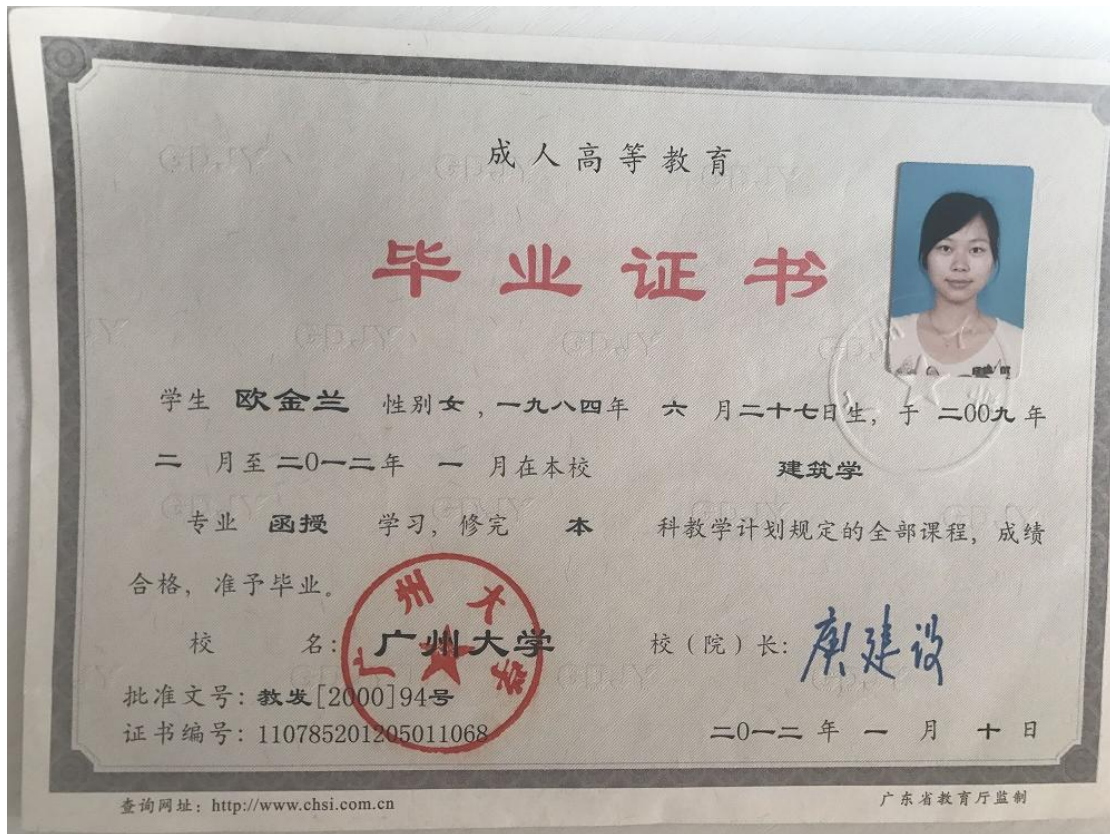 成人高等教育
毕业证书
学生 欧金兰 性别女，一九八四年 六 月二十七日生，于 二00九年
二 月至二0一二年 一 月在本校 建筑学
专业 函授 学习，修完 本 科教学计划规定的全部课程，成绩
合格，准予毕业。
校 名：广州大学 校（院）长：庾建设
批准文号：教发[2000]94号
证书编号：110785201205011068 二0一二 年 一 月 十 日
广州大学
查询网址：http://www.chsi.com.cn 广东省教育厅监制